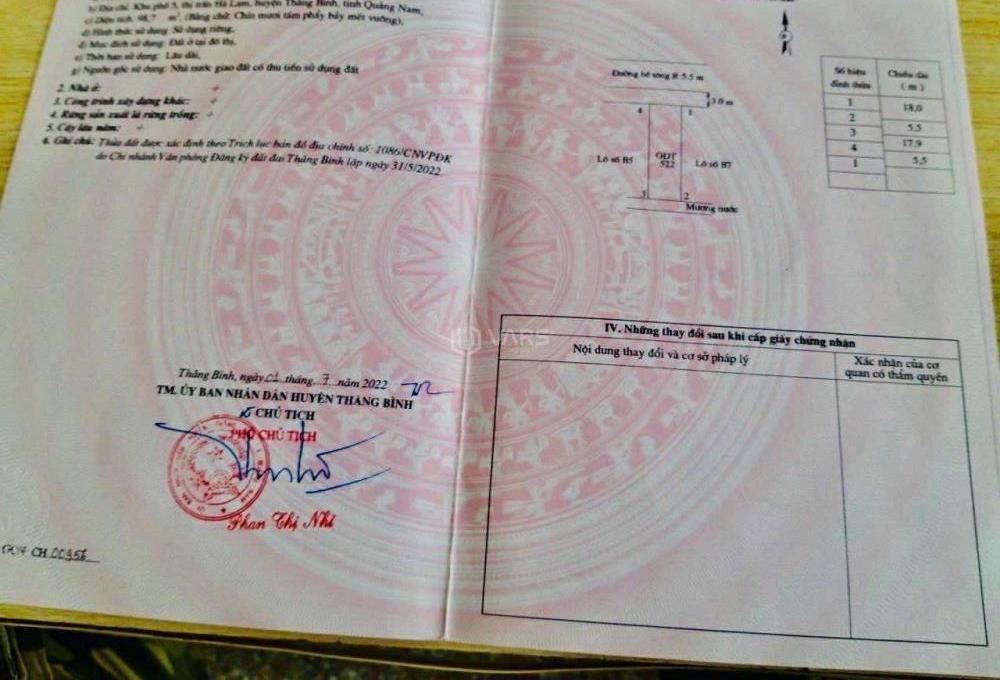 b) Địa chỉ: Khu phố 5, thị trấn Hà Lam, huyện Thăng Bình, tỉnh Quảng Nam,
c) Diện tích: 98,7 m², (Bằng chữ: Chín mươi tám phẩy bảy mét vuông),
d) Hình thức sử dụng: Sử dụng riêng,
đ) Mục đích sử dụng: Đất ở tại đô thị,
e) Thời hạn sử dụng: Lâu dài,
g) Nguồn gốc sử dụng: Nhà nước giao đất có thu tiền sử dụng đất
2. Nhà ở: +
3. Công trình xây dựng khác: +
4. Rừng sản xuất là rừng trồng: +
5. Cây lâu năm: +
6. Ghi chú: Thửa đất được xác định theo Trích lục bản đồ địa chính số: 1086/CNVPĐK
do Chi nhánh Văn phòng Đăng ký đất đai Thăng Bình lập ngày 31/5/2022.
Thăng Bình, ngày 01 tháng 7 năm 2022
TM. ỦY BAN NHÂN DÂN HUYỆN THĂNG BÌNH
CHỦ TỊCH
PHÓ CHỦ TỊCH
Phan Thị Nhi
CH.00956
Đường bê tông R 5.5 m
3.0 m
4 1
Lô số B5 ODT 522 Lô số B7
3 2
Mương nước
Số hiệu đỉnh thửa Chiều dài (m)
1
18,0
2
5,5
3
17,9
4
5,5
1
IV. Những thay đổi sau khi cấp giấy chứng nhận
Nội dung thay đổi và cơ sở pháp lý
Xác nhận của cơ quan có thẩm quyền
VARS